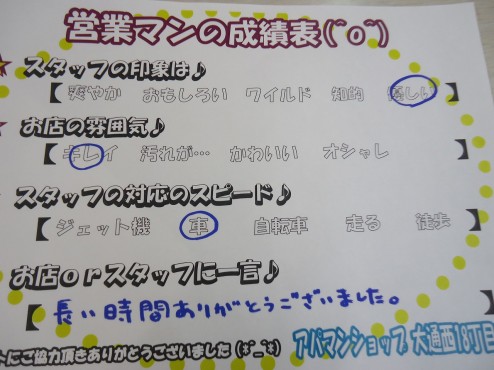 営業マンの成績表(^o^)
スタッフの印象は♪
【 爽やか おもしろい ワイルド 知的 優しい 】
お店の雰囲気♪
【 キレイ 汚れが… かわいい オシャレ 】
スタッフの対応のスピード♪
【 ジェット機 車 自転車 走る 徒歩 】
お店orスタッフに一言♪
【 長い時間ありがとうございました。 】
トにご協力頂きありがとうございました(*^_^*) アパマンショップ 大通西18丁目